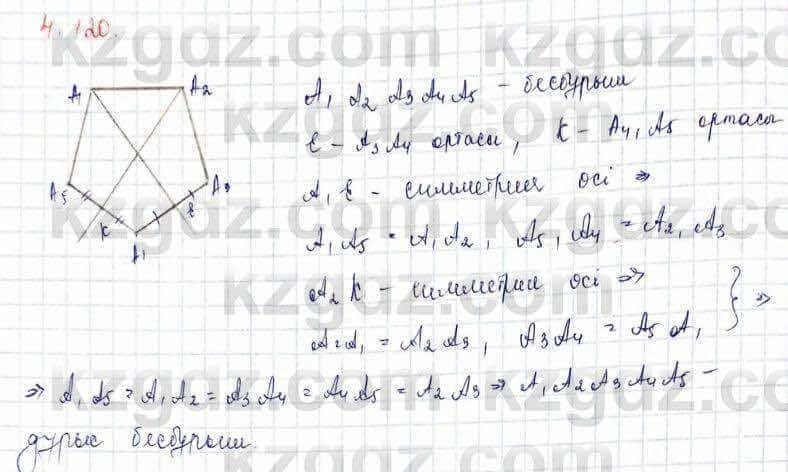 4.120.
A₁ A₂
A₅ A₃
K E
A₁
A₁ A₂ A₃ A₄ A₅ – бесбұрыш
E – A₃ A₄ ортасы, K – A₄, A₅ ортасы
A₁ E – симметрия осі ⇒
A₁ A₅ = A₁ A₂, A₅, A₄ = A₂, A₃
A₂ K – симметрия осі ⇒
A₂ A₁ = A₂ A₃, A₃ A₄ = A₅ A₁ } ⇒
⇒ A₁ A₅ = A₁ A₂ = A₃ A₄ = A₄ A₅ = A₂ A₃ ⇒ A₁ A₂ A₃ A₄ A₅ –
дұрыс бесбұрыш.
kzgdz.com